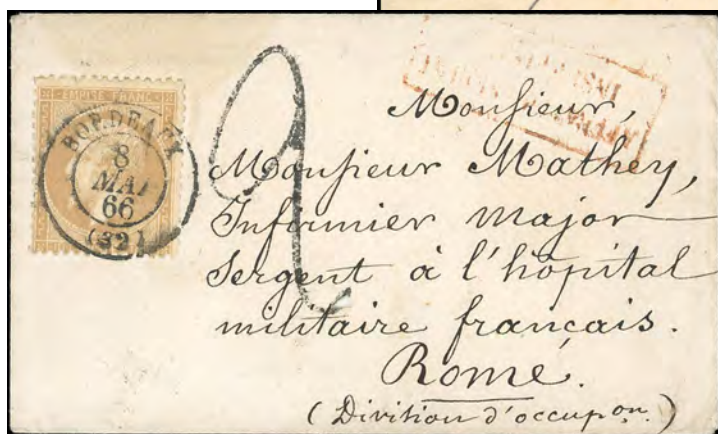 EMPIRE FRANC
BORDEAUX
8
MAI
66
(32)
2
Monsieur,
Monsieur Mathey,
Infirmier Major
Sergent à l'hôpital
militaire français.
Rome.
(Division d'occupon.)